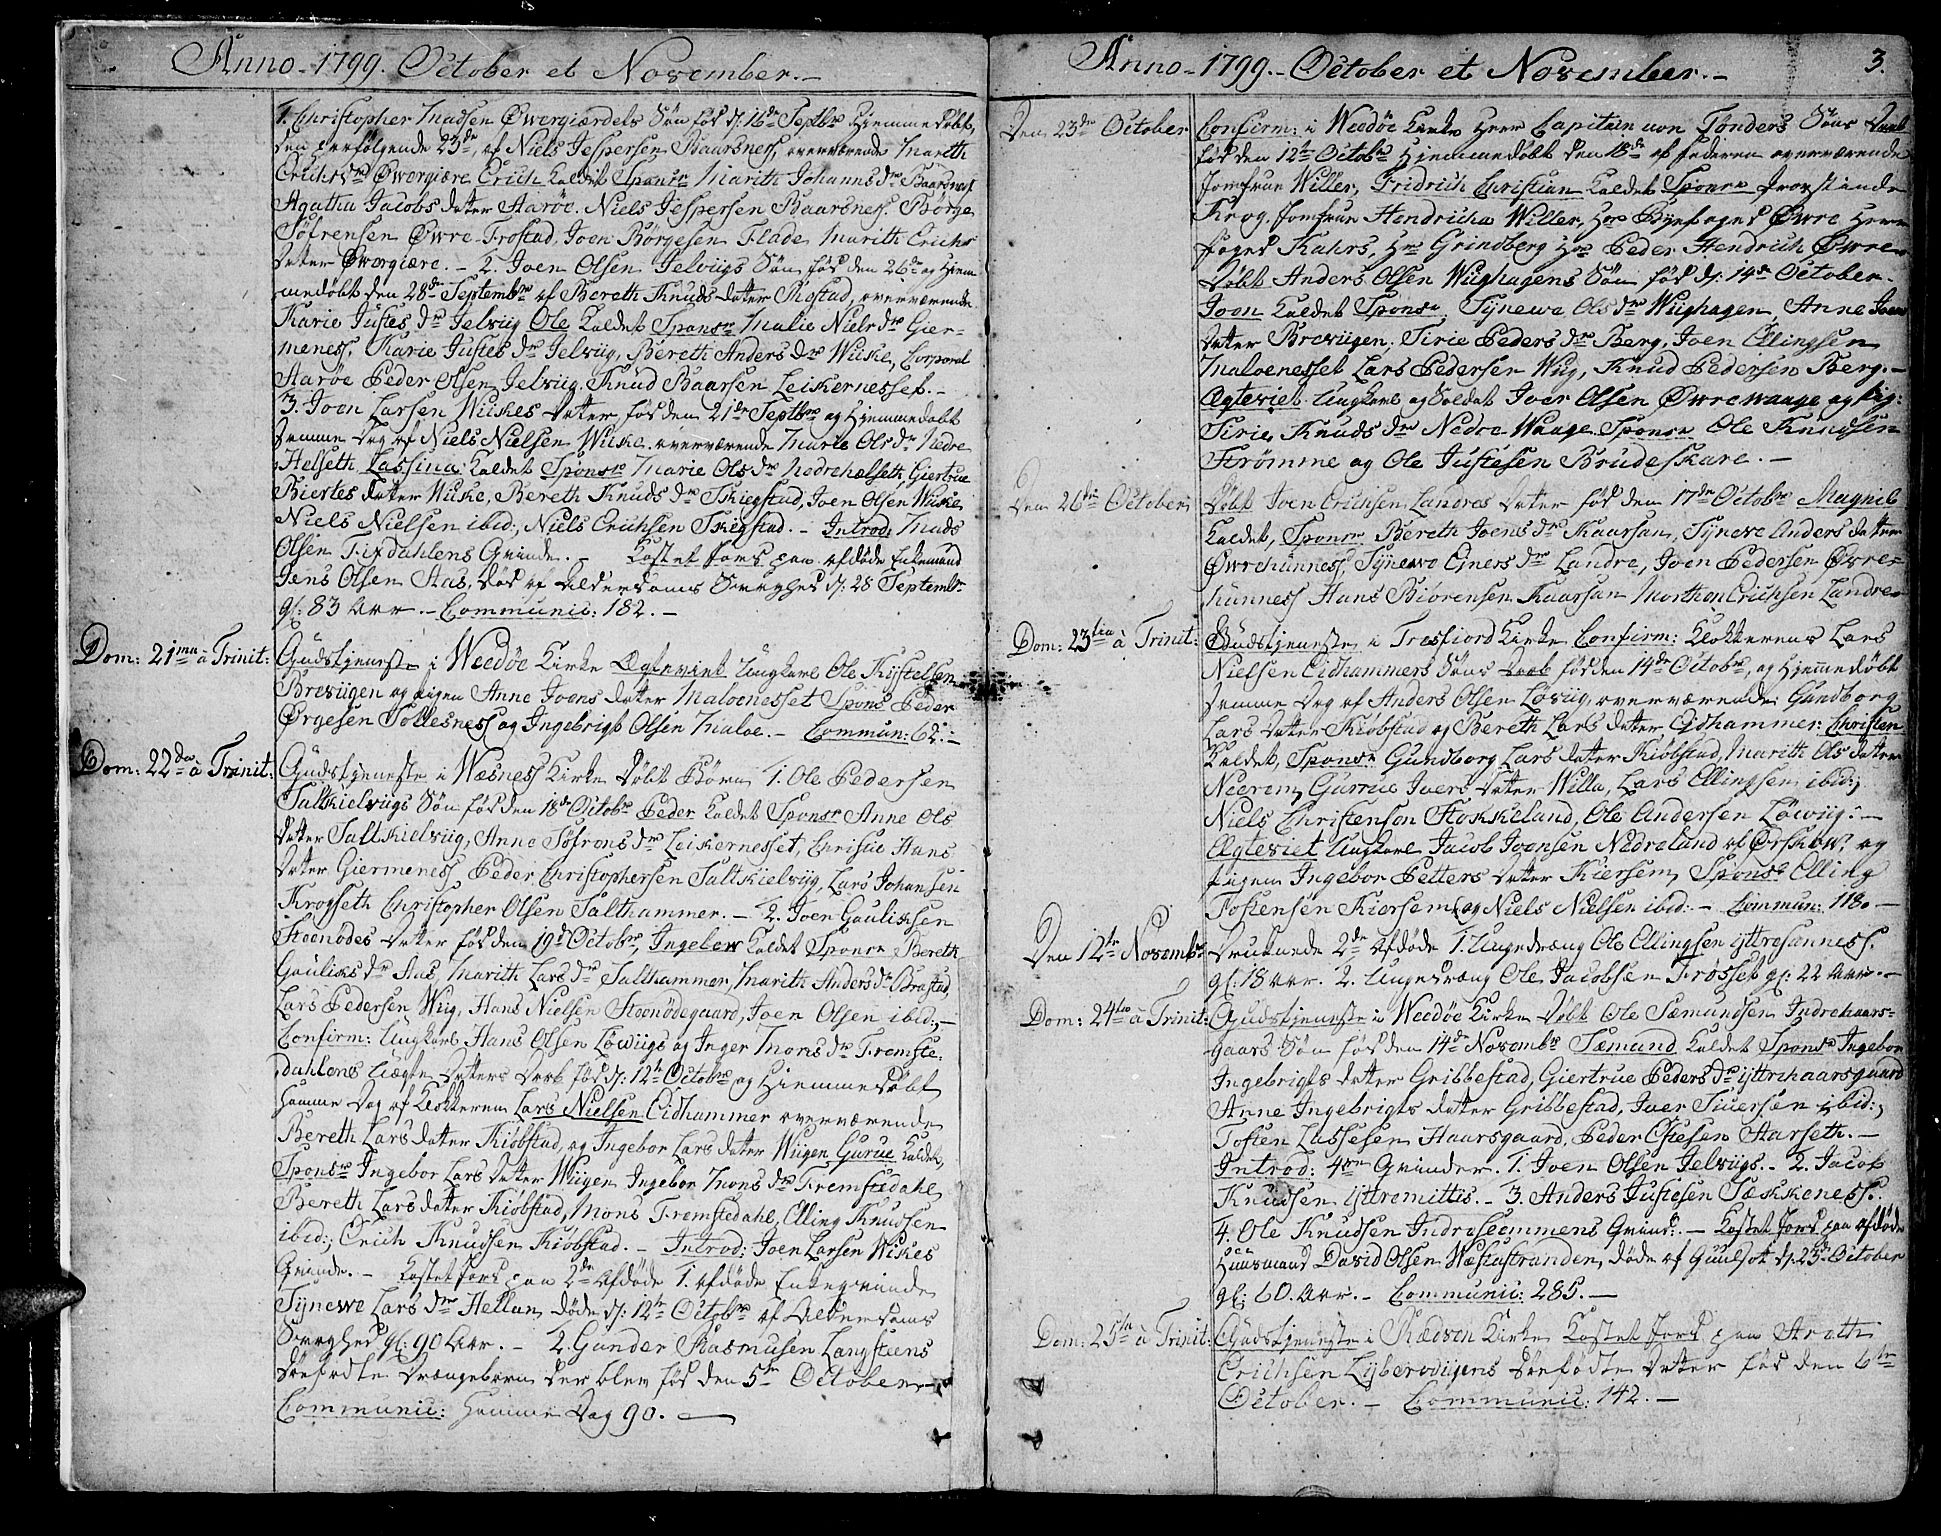 Anno 1799. October et November.
1. Christopher Madsen Øwergiærdets Søn fød d: 16de Septbr Hjemmedøbt
den paafølgende 23de, af Niels Jespersen Baarsness, overværende Mareth
Erichsdr Øwergiære Erich kaldet Sponsr Marith Johannsdr Baarsness
Agatha Jacobs datter Aarøe. Niels Jespersen Baarsness. Børge
Søfrensen Øwre Frostad, Joen Børgesen Flade Marith Erichs
datter Øwergiære. – 2. Joen Olsen Jelviigs Søn fød den 26de og Hjem
medøbt den 28de Septembr af Bereth Knuds datter Røstad, overværende
Karie Justes dr Jelviig Ole kaldet Sponsr Malie Niels dr Gier-
meness, Karie Justes dr Jelviig, Bereth Anders dr Wiike, Corporal
Aarøe Peder Olsen Jelviig. Knud Baarsen Leikernesset. –
3. Joen Larsen Wiikes datter fød den 21de Septbr og Hjemmedøbt
samme Dag af Niels Nielsen Wiike overværende Marie Ols dr Nedre
Helseth Lassina kaldet Sponsr Marie Ols dr Nedrehelseth, Giertrue
Biertes datter Wiike, Bereth Knuds dr Skiegstad, Joen Olsen Wiike
Niels Nielsen ibid:, Niels Erichsen Skiegstad. – Introd: Mads
Olsen Fixdahlens Qvinde. – Kastet Jord paa afdøde Enkemand
Jens Olsen Aas, død af Alderdoms Svaghed d: 28 Septembr
gl: 83 Aar. – Communic: 182. –
Dom: 21ma à Trinit: Gudstjeneste i Weedøe Kirke Ægteviet Ungkarl Ole Kystelsen
Brevigen og Pigen Anne Joens datter Maloenesset Spons Peder
Ørgesen Sollesness og Ingebrigt Olsen Maloe. – Commun: 62: –
Dom: 22da à Trinit: Gudstjeneste i Wæsness Kirke Døbt Børn 1. Ole Pedersen
Saltkielviigs Søn fød den 18de Octobr Peder kaldet Sponsr Anne Ols
datter Saltkielviig, Anne Søfrens dr Leikernesset, Christie Hans
datter Giermeness Peder Christophersen Saltkielviig, Lars Johansen
Krogseth Christopher Olsen Salthammer. – 2. Joen Gauliksen
Stoenødes datter fød den 19d Octobr, Ingebor kaldet Sponsr Bereth
Gauliks dr Aas, Marith Lars dr Salthammer, Marith Anders dr Brastad,
Lars Pedersen Wiig, Hans Nielsen Stoenødegaard, Joen Olsen ibid:, –
Confirm: Ungkarl Hans Olsen Løwiigs og Inger Mons dr Fremste-
dahlens Uægte datters Daab fød d: 12te Octobr og Hiemmedøbt
samme Dag af Klokkeren Lars Nielsen Eidhammer overværende
Bereth Lars datter Kiøbstad, og Ingebor Lars datter Wiigen Gurue kaldet,
Sponsr Ingebor Lars datter Wiigen Ingebor Mons dr Fremstedahl,
Bereth Lars datter Kiøbstad, Mons Fremstedahl, Elling Knudsen
ibid:, Erich Knudsen Kiøbstad. – Introd: Joen Larsen Wiikes
Qvinde. – Kastet Jord paa 2de Afdøde 1. afdøde Enkeqvinde
Synewe Lars dr Hellan, døde d: 12te Octobr af Alderdoms
Svaghed gl: 90 Aar. – 2. Gunder Rasmusen Langsteens
dødfødte Drængebarn der blev fød den 5te October. –
Communic: samme Dag 90. –
Anno 1799. October et November. 3.
Den 23de October Confirm: i Weedøe Kirke Herr Capitain von Tønders Søns Daab
fød den 12te Octobr Hjemmedøbt den 18de af Faderen overværende
Jomfrue Willer, Fridrich Christian kaldet Sponsr Provstinde
Krog, Jomfrue Hendricha Willer, Hr Byefoged Øwre Herr
Foged Kahrs, Hr Grindberg Hr Peder Hendrich Øwre –
Døbt Anders Olsen Wiighagens Søn fød d: 14de October –
Joen kaldet Sponsr Synewe Ols dr Wiighagen, Anne Joens
datter Brevigen, Sirie Peders dr Berg, Joen Ellingsen
Maloenesset Lars Pedersen Wiig, Knud Pedersen Berg. –
Ægteviet Ungkarl og Soldat Iver Olsen Øwrewaage og Pig:
Sirie Knuds dr Nedre Waage Sponsr Ole Knudsen
Strømme og Ole Justesen Brudeskare. –
Den 26de October Døbt Joen Erichsen Landres datter fød den 17de Octobr Magnil
kaldet, Sponsr Bereth Joens dr Kaarsan, Synewe Anders datter
Øwrehunness, Synewe Ejners dr Landre, Joen Pedersen Øvre-
hunness Hans Biørensen Kaarsan Morthen Erichsen Landre –
Dom: 23tia à Trinit: Gudstjeneste i Tresfiord Kirke Confirm: Klokkerens Lars
Nielsen Eidhammers Søns Daab fød den 14de Octobr, og Hjemmedøbt
samme Dag af Anders Olsen Løviig, overværende Gundborg
Lars datter Kiøbstad og Bereth Lars datter Eidhammer. Christen
kaldet, Sponsr Gundborg Lars datter Kiøbstad, Marith Ols datter
Neerem, Gurrue Ivers datter Willa, Lars Ellingsen ibid:,
Niels Christensen Stokkeland, Ole Andersen Løwiig: –
Ægteviet Ungkarl Jacob Joensen Nedreland af Ørskow: og
Pigen Ingebor Petters datter Kiersem, Sponsr Elling
Tostensen Kiersem, og Niels Nielsen ibid: – Commun: 118. –
Den 12te Novembr Druknede 2de Afdøde 1. Ungedræng Ole Ellingsen Yttresanness.
gl: 18 Aar. 2. Ungedræng Ole Jacobsen Frøsset gl: 22 Aar. –
Dom: 24ta à Trinit: Gudstjeneste i Weedøe Kirke Døbt Ole Sæmundsen Indrehaars-
gaars Søn fød den 14de Novembr Sæmund kaldet Sponsr Ingebor
Ingebrigts datter Gribbestad, Giertrue Peders dr Yttrehaarsgaard
Anne Ingebrigts datter Gribbestad, Iver Siversen ibid:,
Tosten Lassesen Haarsgaard, Peder Estesen Aarseth. –
Introd: 4ra Qvinder. 1. Joen Olsen Jelviigs. – 2. Jacob
Knudsen Yttremittis. – 3. Anders Justesen Sækkeness.
4. Ole Knudsen Indreseemmens Qvind: – Kastet Jord paa afdøde
Huusmand David Olsen Wæstestranden, døde af Guulsot d: 23de October
gl: 60. Aar. – Communic: 285. –
Dom: 25ta à Trinit: Gudstjeneste i Rædven Kirke Kastet Jord paa Aroth
Erichsen Lyberødigens dødfødte datter fød den 6te
October. – Communic: 142. –